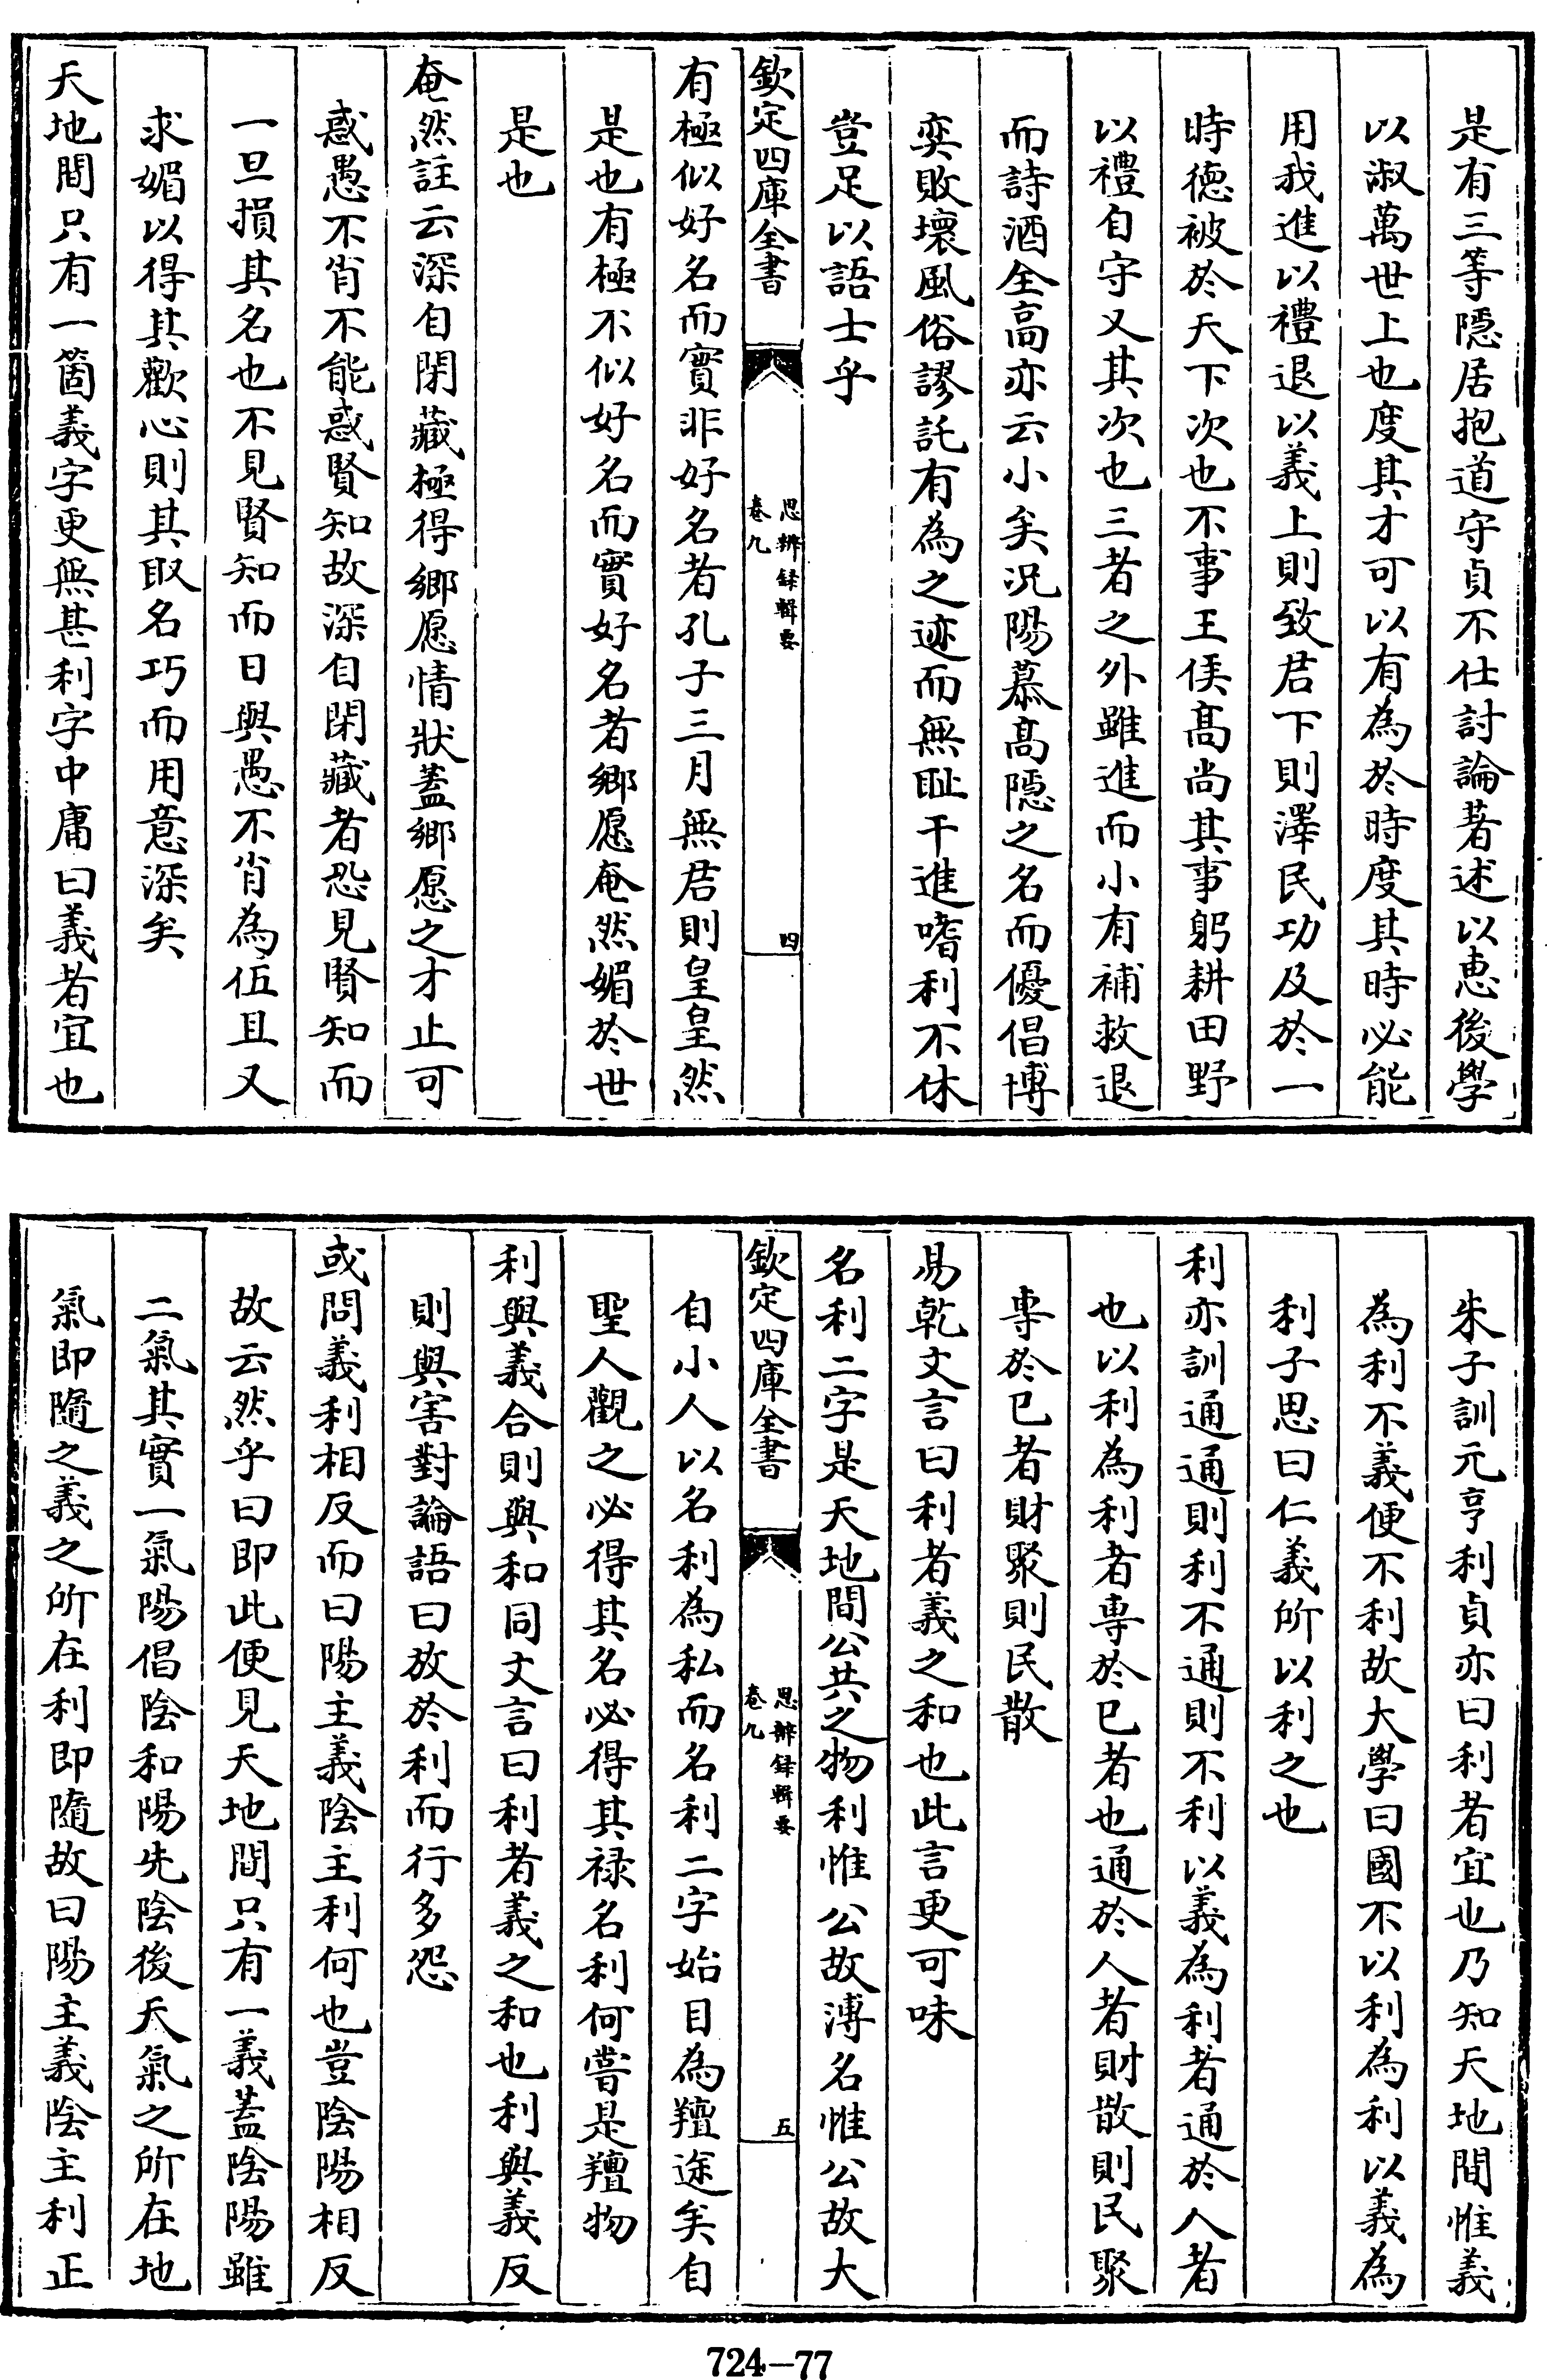 是有三等隱居抱道守貞不仕討論著述以惠後學
以淑萬世上也度其才可以有為於時度其時必能
用我進以禮退以義上則致君下則澤民功及於一
時德被於天下次也不事王侯高尚其事躬耕田野
以禮自守又其次也三者之外雖進而小有補救退
而詩酒全高亦云小矣况陽慕高隱之名而優倡博
奕敗壞風俗謬託有為之迹而無耻干進嗜利不休
豈足以語士乎
欽定四庫全書
思辨録輯要
卷九
四
有極似好名而實非好名者孔子三月無君則皇皇然
是也有極不似好名而實好名者鄉愿奄然媚於世
是也
奄然註云深自閉藏極得鄉愿情狀蓋鄉愿之才止可
惑愚不肖不能惑賢知故深自閉藏者恐見賢知而
一旦損其名也不見賢知而日與愚不肖為伍且又
求媚以得其歡心則其取名巧而用意深矣
天地間只有一箇義字更無甚利字中庸曰義者宜也
朱子訓元亨利貞亦曰利者宜也乃知天地間惟義
為利不義便不利故大學曰國不以利為利以義為
利子思曰仁義所以利之也
利亦訓通通則利不通則不利以義為利者通於人者
也以利為利者專於已者也通於人者財散則民聚
專於已者財聚則民散
易乾文言曰利者義之和也此言更可味
名利二字是天地間公共之物利惟公故溥名惟公故大
欽定四庫全書
思辨録輯要
卷九
五
自小人以名利為私而名利二字始目為羶途矣自
聖人觀之必得其名必得其禄名利何嘗是羶物
利與義合則與和同文言曰利者義之和也利與義反
則與害對論語曰放於利而行多怨
或問義利相反而曰陽主義陰主利何也豈陰陽相反
故云然乎曰即此便見天地間只有一義蓋陰陽雖
二氣其實一氣陽倡陰和陽先陰後天氣之所在地
氣即隨之義之所在利即隨故曰陽主義陰主利正
724-77